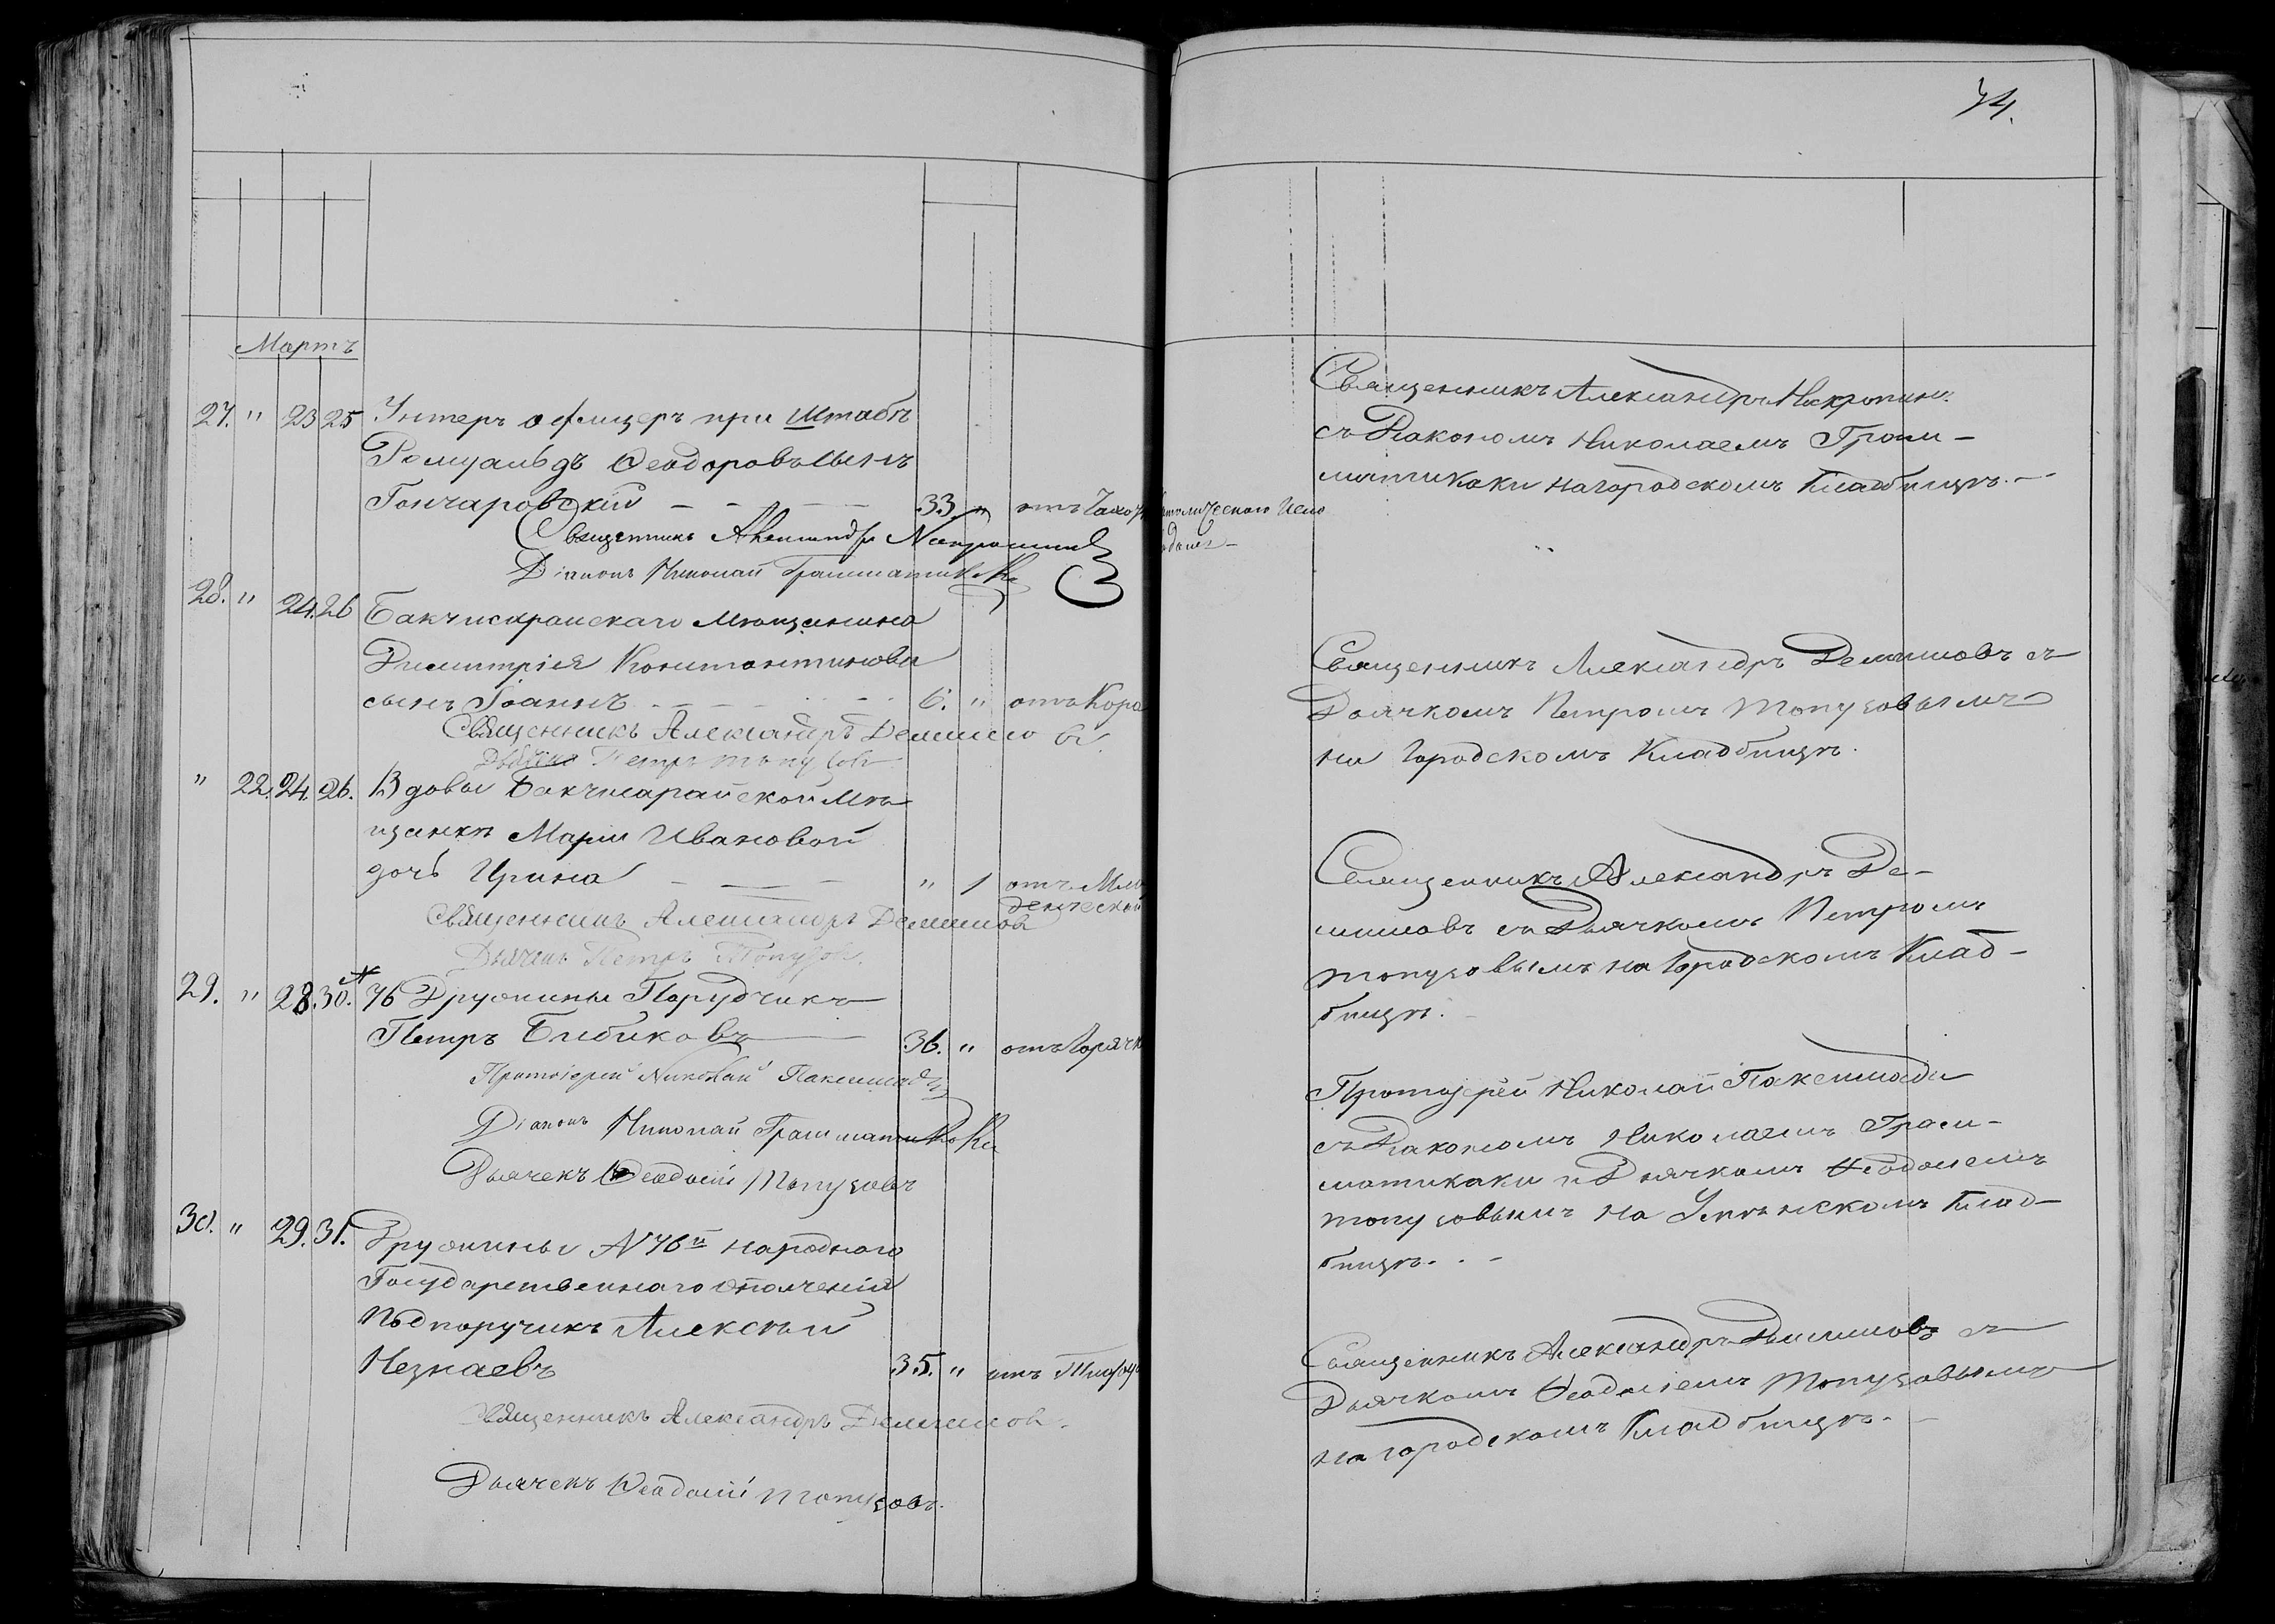 34.
Мартъ
27. " 23 25 Унтеръ офицеръ при Штабѣ
Ромуальдъ Ѳеодоровъ сынъ
Гончаровскій 33. " отъ
Священникъ Александръ
Діаконъ Николай Грамматикаки
28. " 24. 26 Бакчисарайскаго Мѣщанина
Димитрія Константинова
сынъ Іоаннъ 6. " отъ Кора
Священникъ Александръ Демишовъ.
Дьячекъ Петръ Топузовъ
" 22. 24. 26. Вдовы Бакчисарайской Мѣ
щанки Маріи Ивановой
дочь Ирина " 1 отъ Мла
денческой
Священникъ Александръ Демишовъ
Дьячекъ Петръ Топузовъ.
29. " 28. 30. 76 Дружины Порудчикъ
Петръ Бибиковъ 36. " отъ Горячк
Протоіерей Николай Паксимади
Діаконъ Николай Грамматикаки
Дьячекъ Ѳеодосій Топузовъ
30. " 29. 31. Дружины № 76й народнаго
Государственнаго ополченія
Подпоручикъ Алексѣй
Незнаевъ 35. " отъ
Священникъ Александръ Демишовъ.
Дьячекъ Ѳеодосій Топузовъ.
Священникъ Александръ
съ Діакономъ Николаемъ Грам-
матикаки на городскомъ Кладбищѣ.
Священникъ Александръ Демишовъ съ
Дьячкомъ Петромъ Топузовымъ
на Городскомъ Кладбищѣ.
Священникъ Александръ Де-
мишовъ съ Дьячкомъ Петромъ
Топузовымъ на Городскомъ Клад-
бищѣ.
Протоіерей Николай Паксимади
съ Діакономъ Николаемъ Грам-
матикаки и Дьячкомъ Ѳеодосіемъ
Топузовымъ на Успѣнскомъ Клад-
бищѣ.
Священникъ Александръ Демишовъ съ
Дьячкомъ Ѳеодосіемъ Топузовымъ
на городскомъ Кладбищѣ.